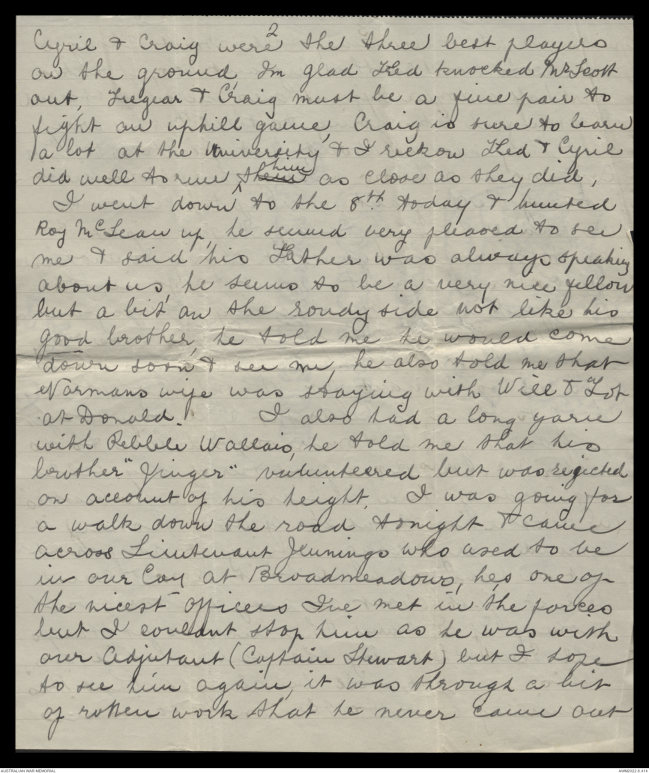 2
Cyril & Craig were the three best players
on the ground, Im glad Fred knocked McScott
out, Tregear & Craig must be a fine pair to
fight an uphill game, Craig is sure to learn
a lot at the University, & I reckon Fred & Cyril
did well to run them as close as they did,
I went down to the 8th today & hunted
Roy McLean up, he seemed very pleased to see
me & said his Father was always speaking
about us, he seems to be a very nice fellow
but a bit on the rowdy side not like his
good brother, he told me he would come
down soon & see me, he also told me that
Normans wife was staying with Will & Lot
at Donald. I also had a long yarn
with Pebble Wallais, he told me that his
brother "Ginger" volunteered but was rejected
on account of his height. I was going for
a walk down the road tonight & came
across Lieutenant Jennings who used to be
in our Coy at Broadmeadows, hes one of
the nicest officers Ive met in the forces
but I couldnt stop him as he was with
our Adjutant (Captain Stewart) but I hope
to see him again, it was through a bit
of rotten work that he never came out
AUSTRALIAN WAR MEMORIAL